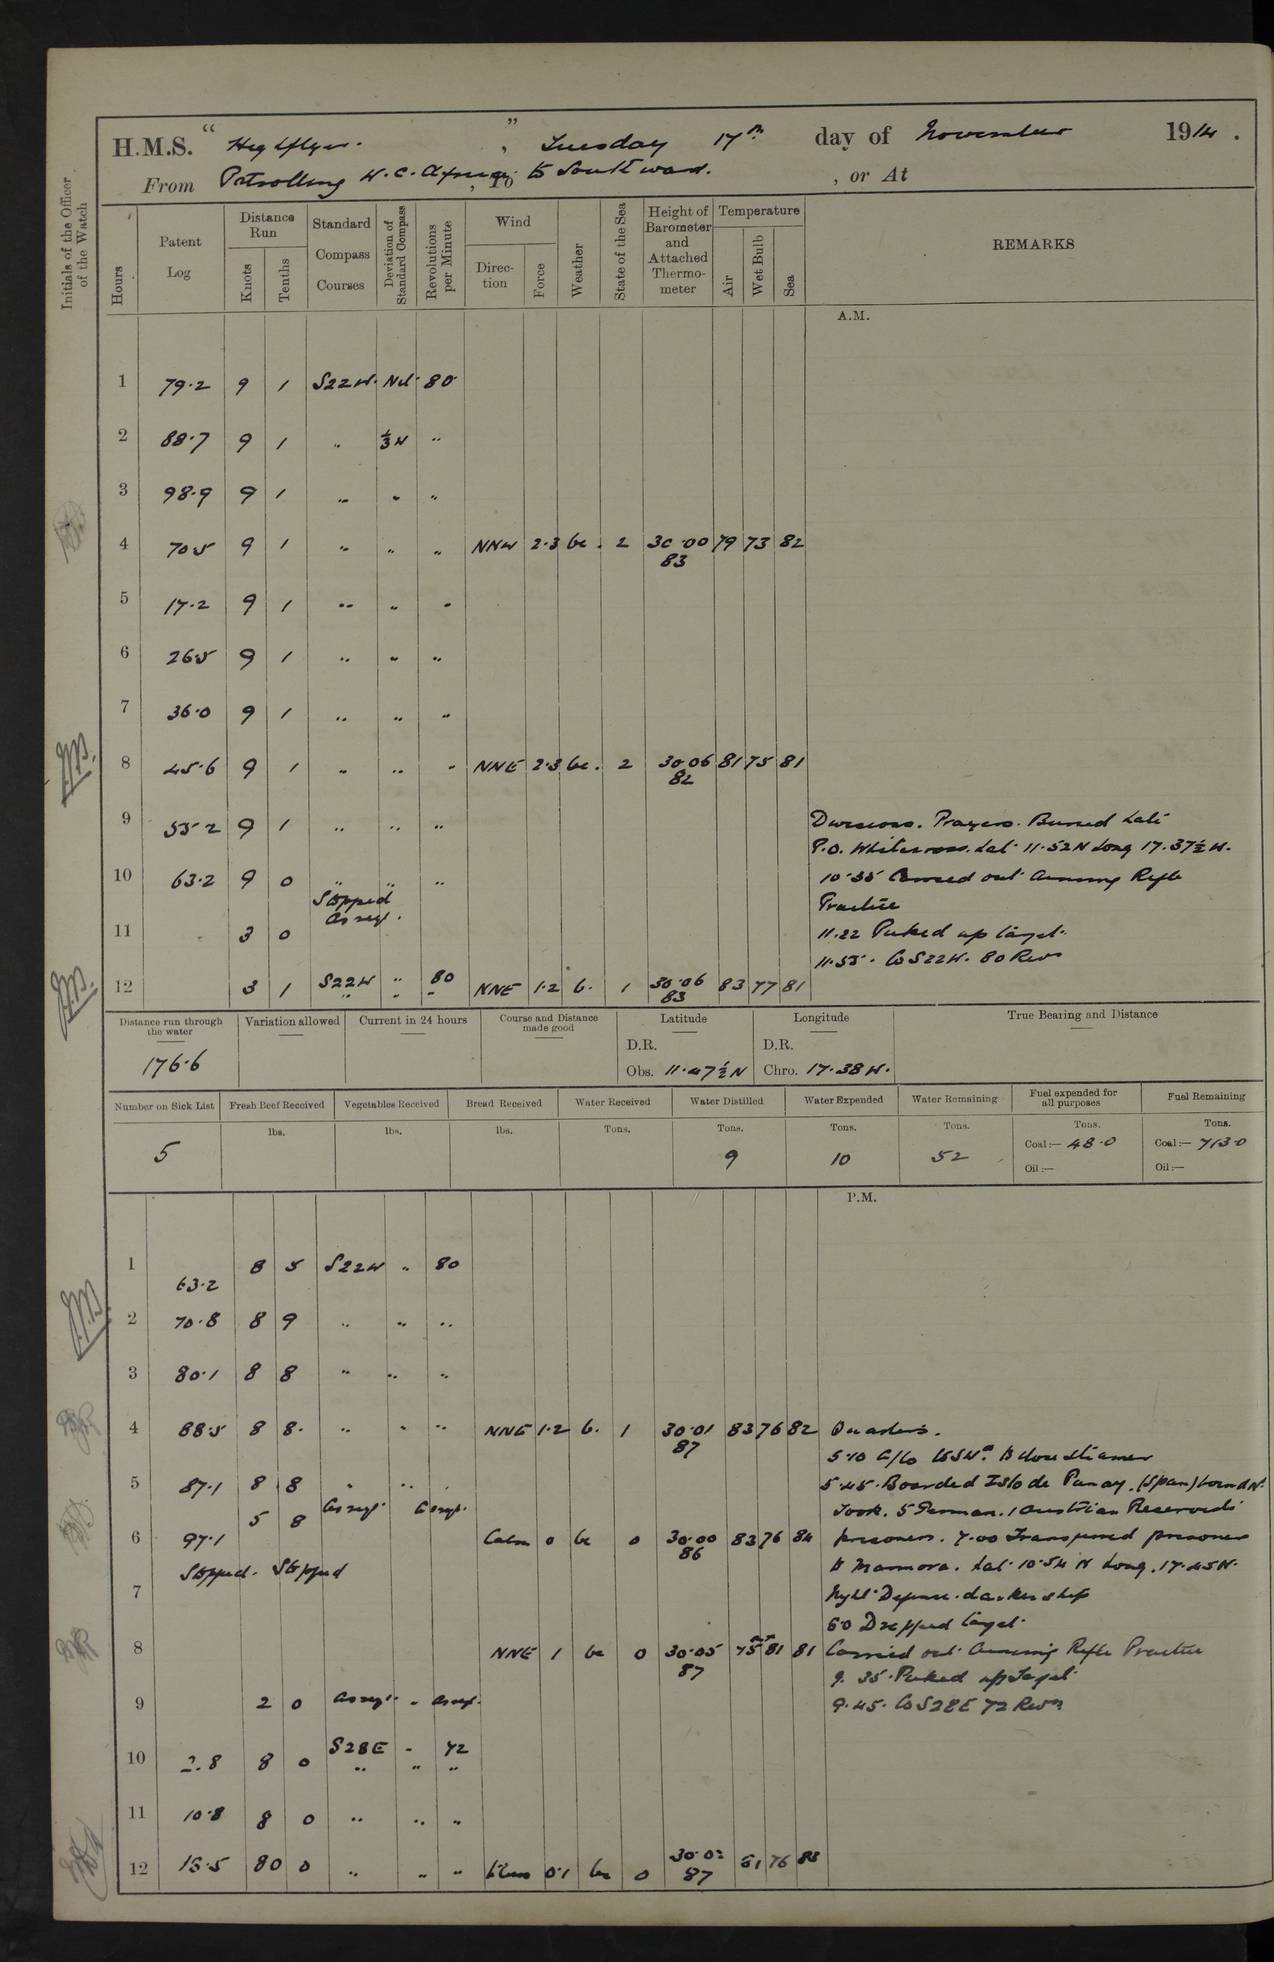 H.M.S. "Highflyer.", Tuesday 17th day of November 1914.
From Patrolling W.C. Africa, To to Southward. , or At
Initials of the Officer of the Watch
Hours
Patent Log
Distance Run
Knots
Tenths
Standard Compass Courses
Deviation of Standard Compass
Revolutions per Minute
Wind
Direction
Force
Weather
State of the Sea
Height of Barometer and Attached Thermometer
Temperature
Air
Wet Bulb
Sea
REMARKS
A.M.
1 79.2 9 1 S22W. Nil 80
2 88.7 9 1 " ⅓W "
3 98.9 9 1 " " "
4 70.5 9 1 " " " NNW 2.3 bc. 2 30.00 79 73 82
83
5 17.2 9 1 " " "
6 26.5 9 1 " " "
7 36.0 9 1 " " "
8 45.6 9 1 " " " NNE 2.3 bc. 2 30.06 81 75 81
82
9 55.2 9 1 " " " Divisions. Prayers. Buried late
P.O. Whitecross. Lat 11.52N Long 17.37½W.
10 63.2 9 0 " " " 10.35 Carried out Aiming Rifle
Stopped
As req. Practice
11 3 0 11.22 Picked up target.
11.55. Co S22W. 80 Revs
12 3 1 S22W " 80 NNE 1.2 b. 1 30.06 83 77 81
" " " 83
Distance run through the water 176.6
Variation allowed
Current in 24 hours
Course and Distance made good
Latitude D.R. Obs. 11.47½N
Longitude D.R. Chro. 17.38W.
True Bearing and Distance
Number on Sick List 5
Fresh Beef Received lbs.
Vegetables Received lbs.
Bread Received lbs.
Water Received Tons.
Water Distilled Tons. 9
Water Expended Tons. 10
Water Remaining Tons. 52
Fuel expended for all purposes Tons. Coal:— 48.0 Oil:—
Fuel Remaining Tons. Coal:— 713.0 Oil:—
P.M.
1 63.2 8 5 S22W " 80
2 70.8 8 9 " " "
3 80.1 8 8 " " "
4 88.5 8 8. " " " NNE 1.2 b. 1 30.01 83 76 82 Quarters.
87
5.10 A/Co to close steamer
5 87.1 8 8 " " 5.45. Boarded Isla de Panay. (Span) bound N.
5 8 As req. As req. Took. 5 German. 1 Austrian Reservists
6 97.1 Calm 0 bc 0 30.00 83 76 84 prisoners. 7.00 Transferred prisoners
86
Stopped. Stopped to Marmora. Lat 10.54 N Long. 17.45W.
7 Night Defence. darken ship
6.0 Dropped target.
8 NNE 1 bc 0 30.05 75 81 81 Carried out Aiming Rifle Practice
87
9.35. Picked up Target
9 2 0 As req. " As req. 9.45. Co S28E 72 Revs
10 2.8 8 0 S28E " 72
" " "
11 10.8 8 0 " " "
12 18.5 80 0 " " " 0.1 bc 0 30.02 81 76 83
87